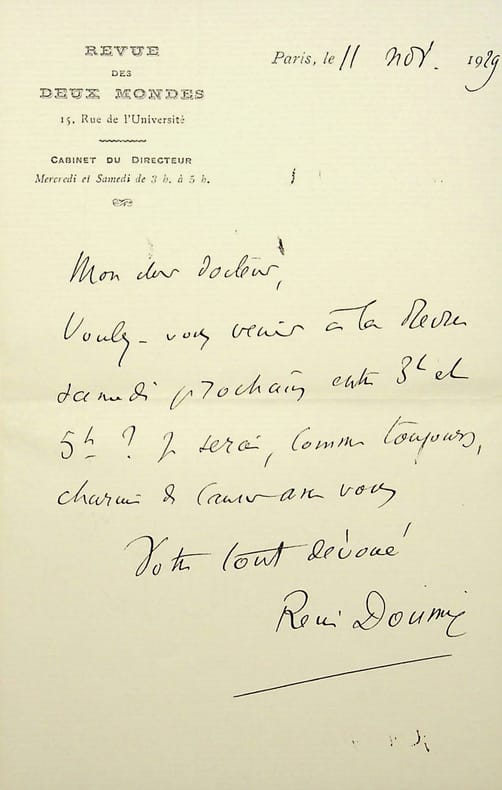 REVUE
DES
DEUX MONDES
15, Rue de l'Université
CABINET DU DIRECTEUR
Mercredi et Samedi de 3 h. à 5 h.
Paris, le 11 nov. 1929
Mon cher Docteur,
Voulez-vous venir à la Revue
samedi prochain entre 3h et
5h ? Je serai, comme toujours,
charmé de causer avec vous
Votre tout dévoué
René Doumic